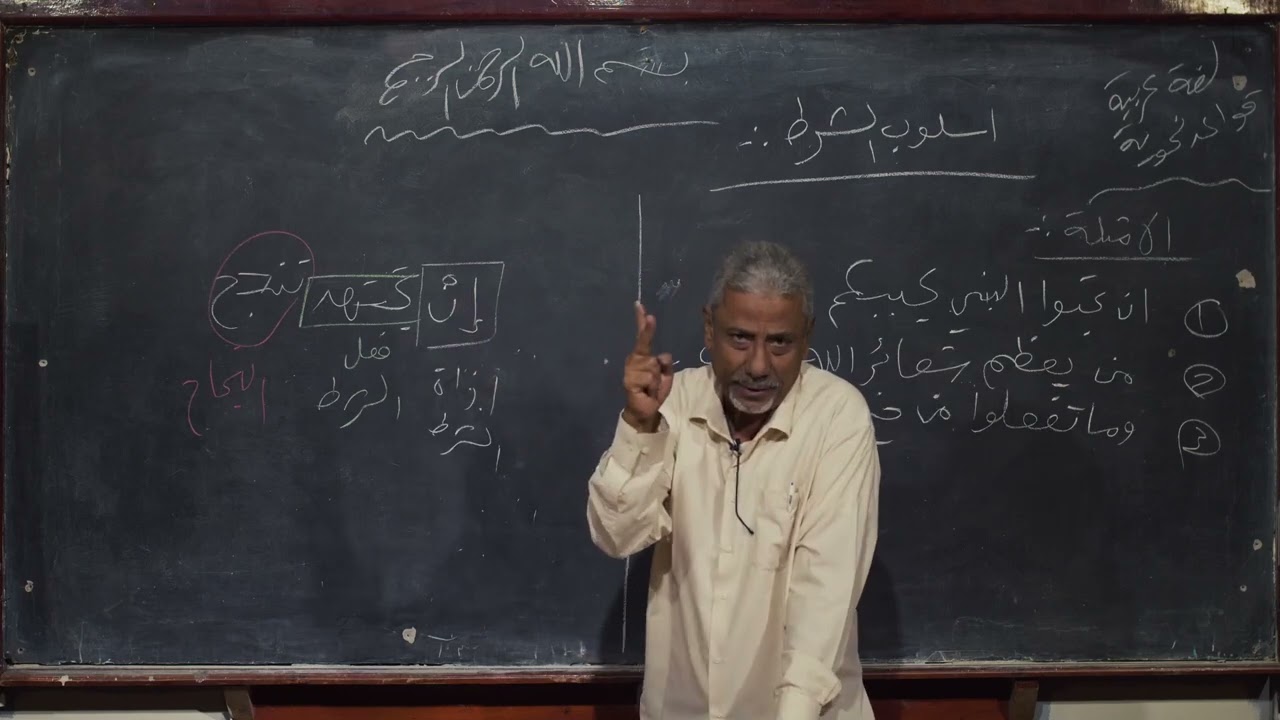 بسم الله الرحمن الرحيم
لغة عربية
قواعد نحوية
اسلوب الشرط :-
الامثلة :-
① ان تحبوا النبي يحببكم
② من يعظم شعائر الله
③ وما تفعلوا من
إن تجتهد تنجح
فعل
الشرط
اداة
الشرط
النجاح